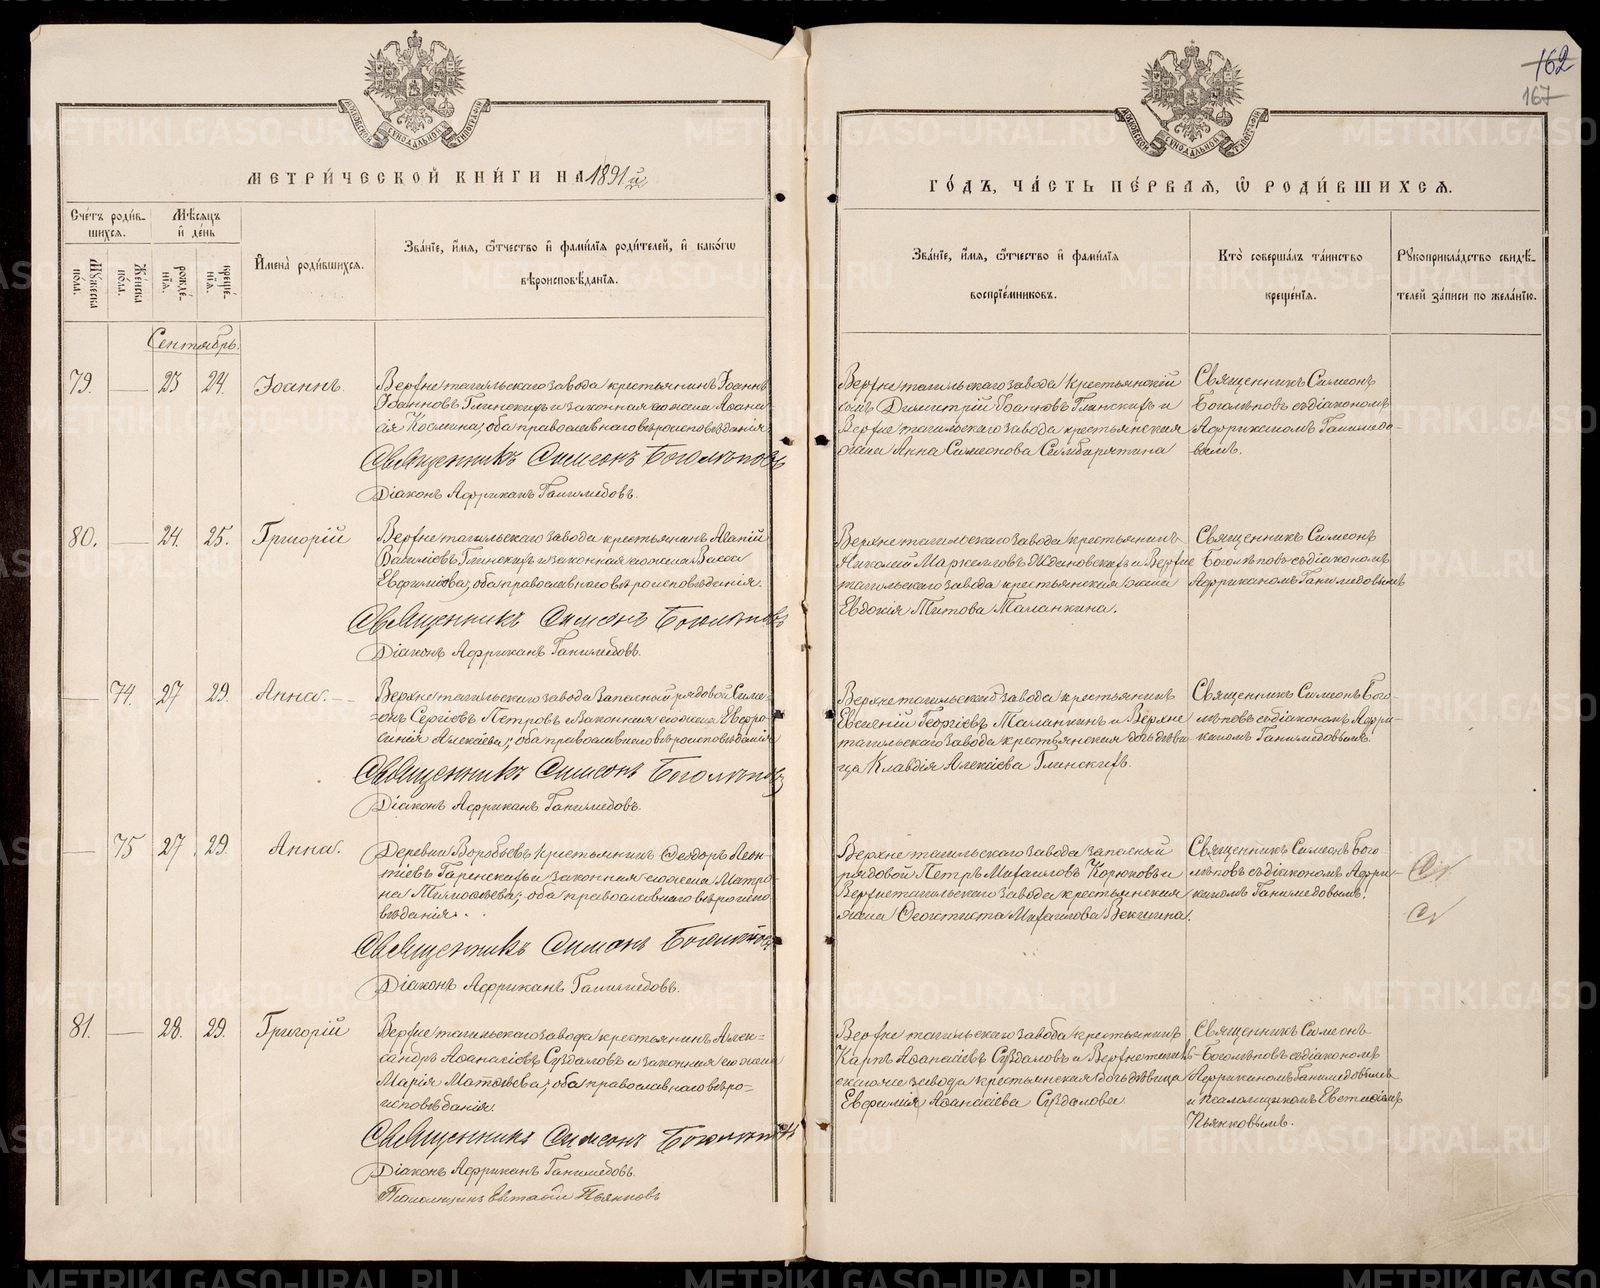 162
167
МЕТРИ́ЧЕСКОЙ КНИ́ГИ НА 1891 й
ГО́ДЪ, ЧА́СТЬ ПЕ́РВАЯ, Ѽ РОДИ́ВШИХСЯ.
Сче́тъ роди́вшихся.
Мѣ́сяцъ и̂ де́нь
Мꙋ́жеска по́ла.
Же́нска по́ла.
рожде́нїѧ.
креще́нїѧ.
И̂мена̀ роди́вшихсѧ.
Зва́нїе, и҆́мѧ, ѻ҆́тчество и҆ фами́лїѧ роди́телей, и҆ како́гѡ
вѣроисповѣ́данїѧ.
Зва́нїе, и҆́мѧ, ѻ҆́тчество и҆ фами́лїѧ
воспрїе́мниковъ.
Кто̀ соверша́лъ та́инство
креще́нїѧ.
Рꙋкоприкла́дство свидѣ́-
телей за́писи по жела́нїю.
Сентябрь.
79.
23
24.
Іоаннъ.
Верхнетагильскаго завода крестьянинъ Іоаннъ
Іоанновъ Глинскихъ и законная его жена Афана-
сія Космина; оба православнаго вѣроисповѣданія.
Священникъ Симеонъ Боголѣповъ
Діаконъ Африканъ Ганимедовъ.
Верхнетагильскаго завода крестьянскій
сынъ Димитрій Іоанновъ Глинскихъ и
Верхнетагильскаго завода крестьянская
жена Анна Симеонова
Священникъ Симеонъ
Боголѣповъ съ діакономъ
Африканомъ Ганимедо-
вымъ.
80.
24.
25.
Григорій
Верхнетагильскаго завода крестьянинъ
Глинскихъ и законная его жена Васса
Евфимова; оба православнаго вѣроисповѣданія.
Священникъ Симеонъ Боголѣповъ
Діаконъ Африканъ Ганимедовъ.
Верхнетагильскаго завода крестьянинъ
Николай Маркеловъ Ждановскихъ и Верхне
тагильскаго завода крестьянская жена
Евдокія Титова Маланкина.
Священникъ Симеонъ
Боголѣповъ съ діакономъ
Африканомъ Ганимедовымъ
74.
27
29.
Анна.
Верхнетагильскаго завода запасный рядовой Симе-
онъ Сергіевъ Петровъ и законная его жена Евфро-
синія Алексіева; оба православнаго вѣроисповѣданія
Священникъ Симеонъ Боголѣповъ
Діаконъ Африканъ Ганимедовъ.
Верхнетагильскаго завода крестьянинъ
Евгеній Георгіевъ Маланкинъ и Верхне
тагильскаго завода крестьянская дочь дѣви-
ца Клавдія Алексіева Глинскихъ.
Священникъ Симеонъ Бого-
лѣповъ съ діакономъ Афри-
каномъ Ганимедовымъ.
75
27.
29.
Анна.
Деревни Воробьевъ крестьянинъ Ѳеодоръ Леон-
тіевъ и законная его жена Матро-
на Тимоѳеева; оба православнаго вѣроиспо-
вѣданія.
Священникъ Симеонъ Боголѣповъ
Діаконъ Африканъ Ганимедовъ.
Верхнетагильскаго завода запасный
рядовой Петръ Михаиловъ Корюковъ и
Верхнетагильскаго завода крестьянская
жена Ѳеоктиста Михаилова Векшина.
Священникъ Симеонъ Бого
лѣповъ съ діакономъ Афри-
каномъ Ганимедовымъ.
81.
28.
29.
Григорій
Верхнетагильскаго завода крестьянинъ Алек-
сандръ Аѳанасіевъ Суздаловъ и законная его жена
Марія Матѳеева; оба православнаго вѣро-
исповѣданія.
Священникъ Симеонъ Боголѣповъ
Діаконъ Африканъ Ганимедовъ.
Псаломщикъ Пьянковъ
Верхнетагильскаго завода крестьянинъ
Карпъ Аѳанасіевъ Суздаловъ и Верхнетагиль-
скаго завода крестьянская дочь дѣвица
Евфимія Аѳанасіева Суздалова
Священникъ Симеонъ
Боголѣповъ съ діакономъ
Африканомъ Ганимедовымъ
и псаломщикомъ
Пьянковымъ.
METRIKI.GASO-URAL.RU